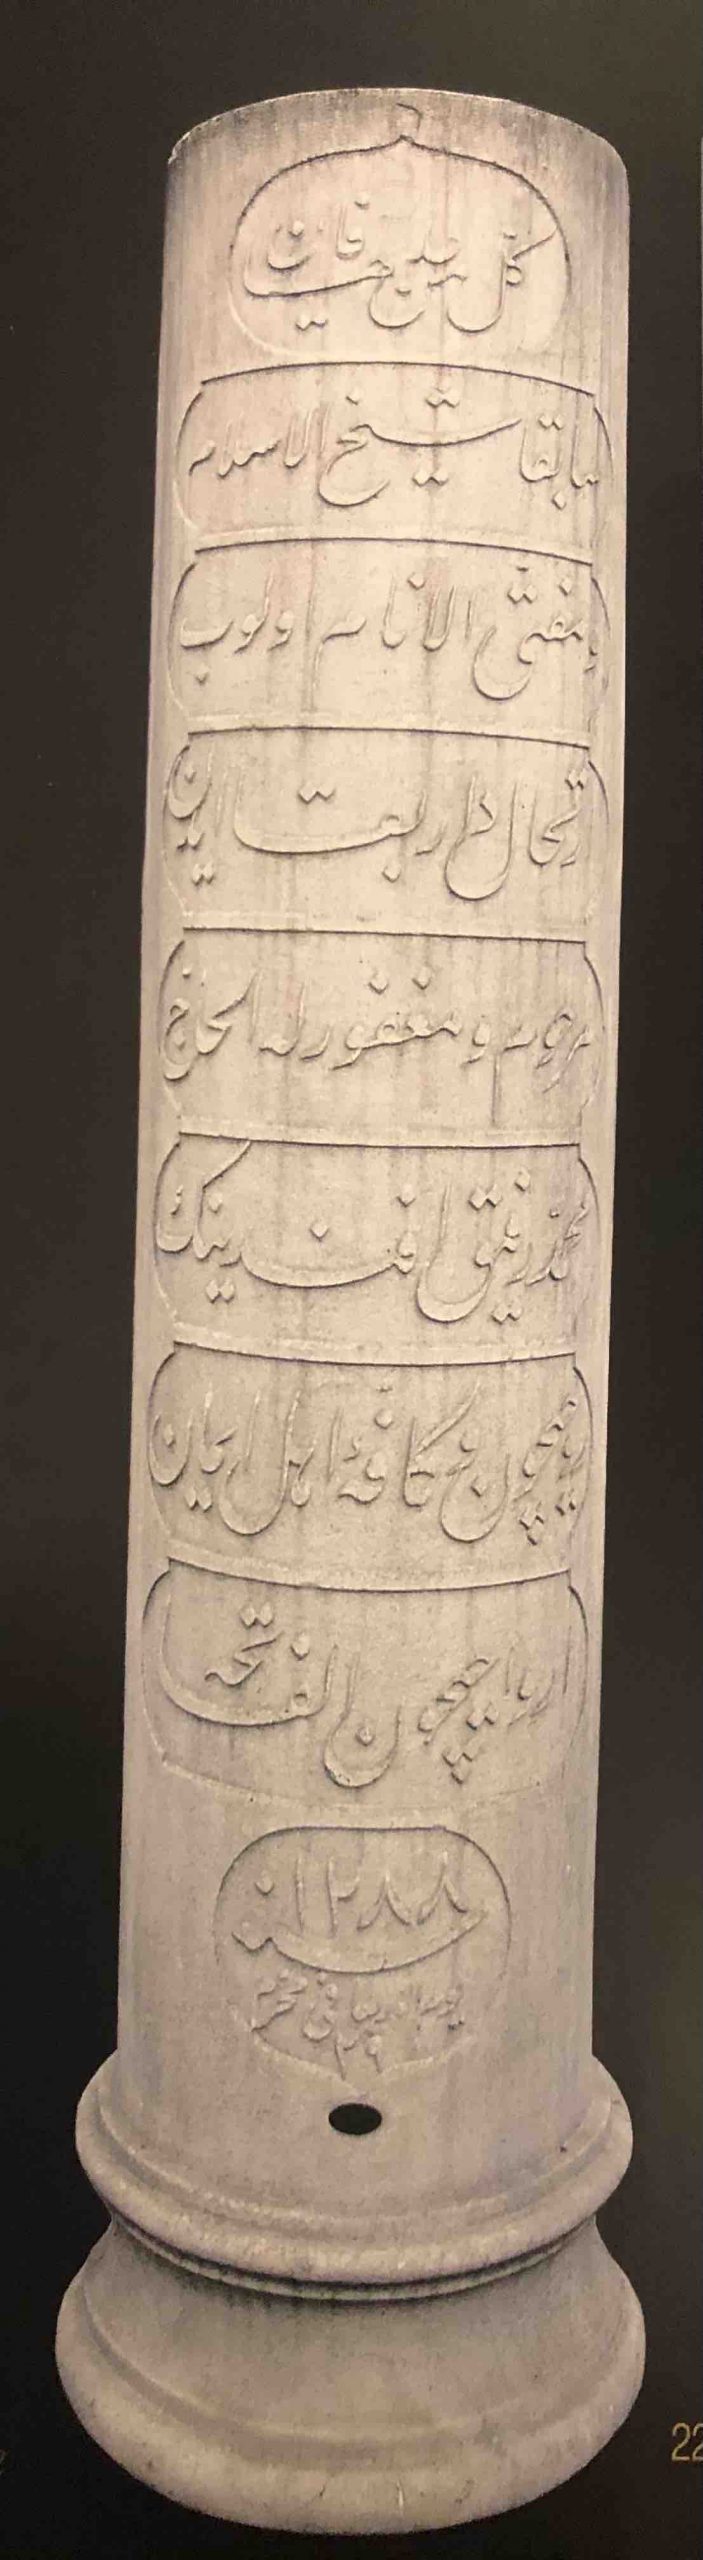 كل من عليها فان
سابقا شيخ الاسلام
و مفتى الانام اولوب
ارتحال دار بقا ايدن
مرحوم و مغفور له الحاج
محمد رفيق افندينك
روحيچون مع كافهٔ اهل ايمان
ارواحيچون الفاتحه
سنه ١٢٨٨
محرم ٢٩
22